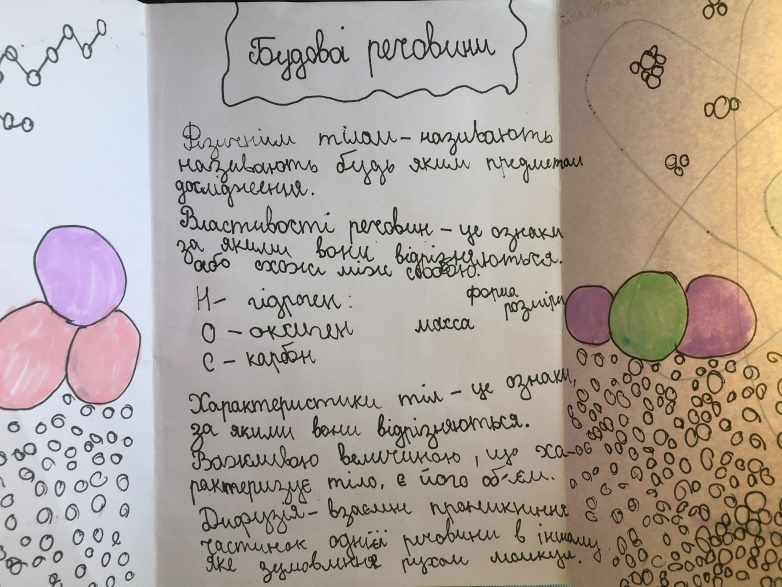 Будові речовини
Фізичнім тілом – називають
називають будь яким предметом
дослідження.
Властивості речовин – це ознаки
за якими вони відрізняються.
або схожі між собою.
Н – гідроген :
форма
розміри
О – оксиген
масса
С – карбон
Характеристики тіл – це ознаки,
за якими вони відрізняються.
Важливою величиною, що ха-
рактеризує тіло, є його об'єм.
Дифузія – взаємне проникнення
частинок однієї речовини в іншому
яке зумовлене рухом молекул.